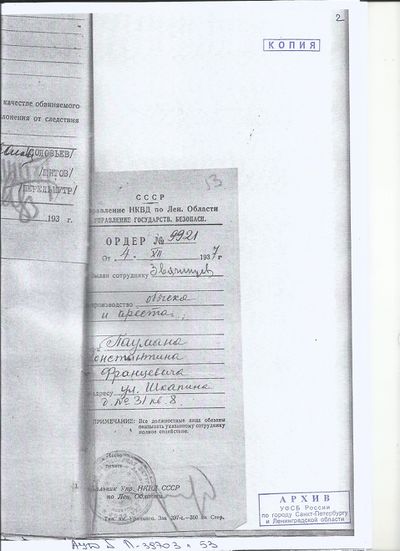 2
КОПИЯ
качестве обвиняемого
лонения от следствия
СОЛОВЬЕВ/
/ПИТОВ/
ПЕРЕЛЬМУТР/
193 г.
53
СССР
равление НКВД по Лен. Области
УПРАВЛЕНИЕ ГОСУДАРСТВ. БЕЗОПАСН.
ОРДЕР № 9921
От 4. XII 1937 г
Выдан сотруднику
производство обыска
и ареста
Паумана
Константина
Францевича
адресу ул. Шкапина
д. № 31 кв. 8.
ПРИМЕЧАНИЕ: Все должностные лица обязаны
оказывать указанному сотруднику
полное содействие.
печати
альник Упр. НКВД СССР
по Лен. Области
АРХИВ
УФСБ России
по городу Санкт-Петербургу
и Ленинградской области
П-35703 53